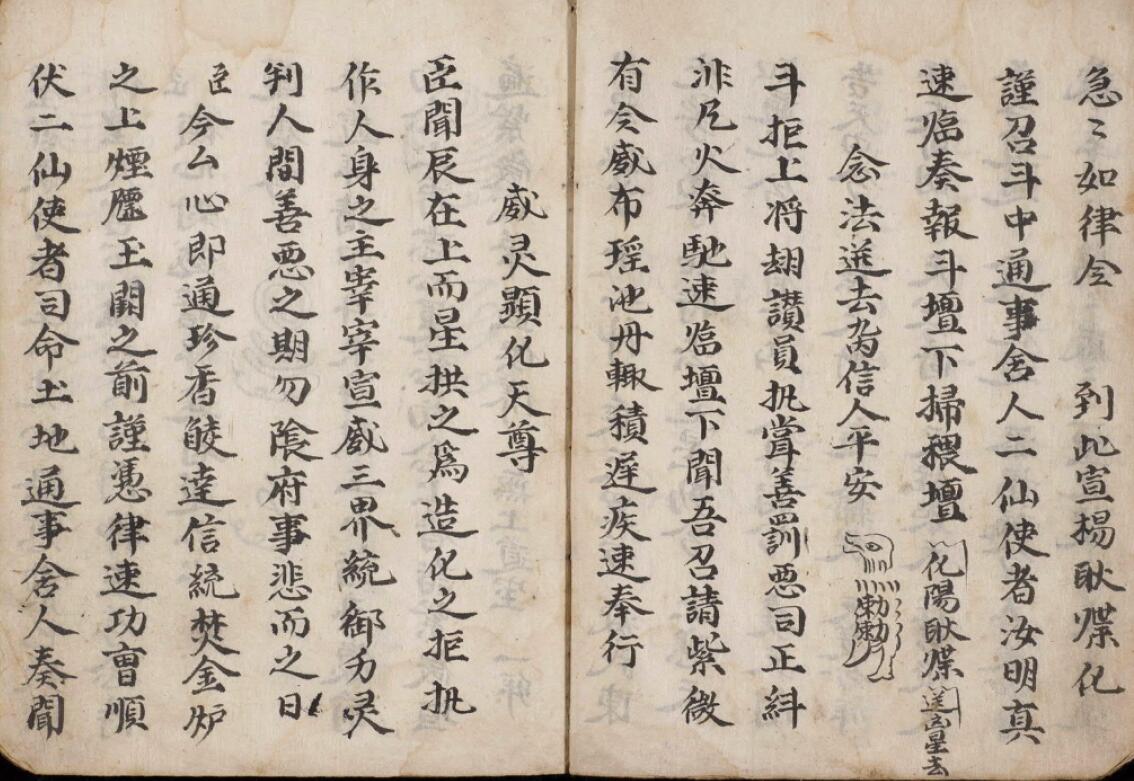 急〻如律令 到此宣揚耿煠化
謹召斗中通事舍人二仙使者汝明真
速臨奏報斗壇下掃穢壇 化陽耿煠送凶星去
念法送去為信人平安
勅勅
斗拒上将翃讃員扎嵩善罰惡司正糾
非凡火奔馳速臨壇下聞吾召請紫微
有令威布瑶池丹輙積遅疾速奉行
威灵顯化天尊
臣聞辰在上而星拱之為造化之拒扎
作人身之主宰宰宣威三界統御力灵
判人間善惡之期勿陰府事悲而之日
臣今厶心即通珍香能達信統焚金炉
之上煙壓玉闕之前謹憑律速功曺順
伏二仙使者司命土地通事舍人奏聞